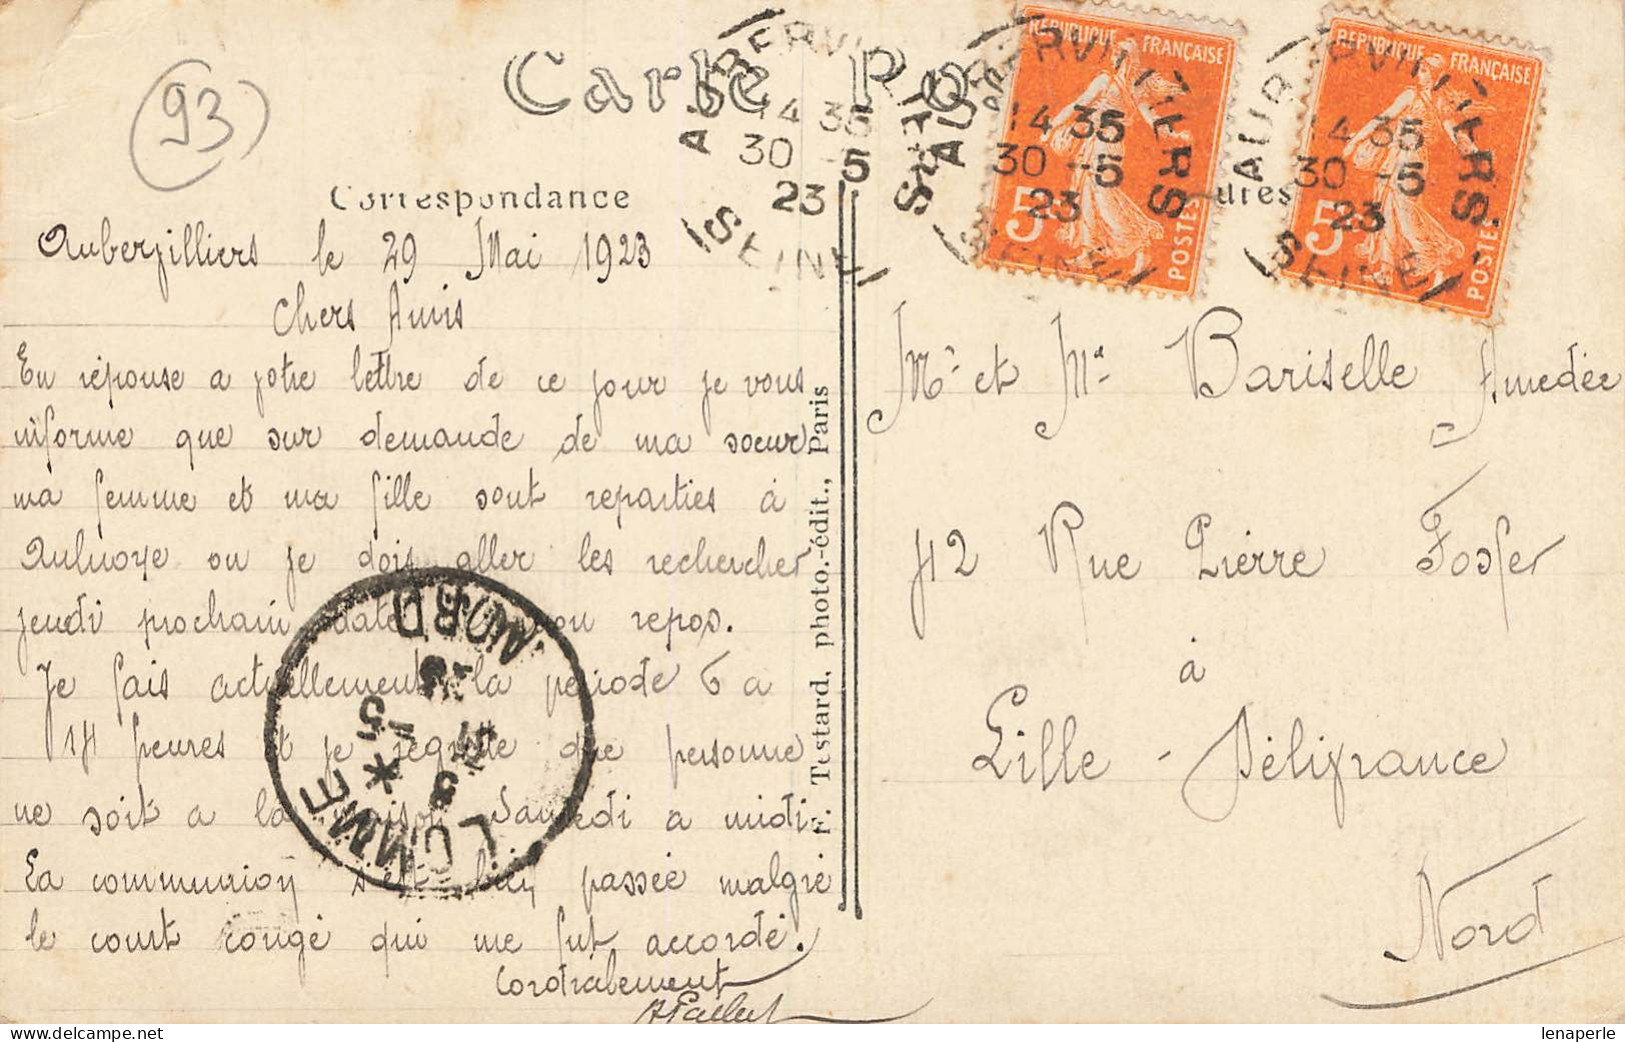 93
Carte Po
AUBERVILLIERS
14 35
30 -5
23
SEINE
AUBERVILLIERS
14 35
30 -5
23
SEINE
AUBERVILLIERS
14 35
30 -5
23
SEINE
REPUBLIQUE FRANÇAISE
5
POSTES
REPUBLIQUE FRANÇAISE
5
POSTES
Correspondance
Aubervilliers le 29 Mai 1923
Chers Amis
En réponse a votre lettre de ce jour je vous
informe que sur demande de ma sœur
ma femme et ma fille sont reparties à
Aulnoye ou je dois aller les rechercher
jeudi prochain date mon repos.
Je fais actuellement la période 6 a
14 heures et je regrette que personne
ne soit a la maison Samedi a midi
La communion s'est bien passée malgré
le court congé qui me fut accordé.
Cordialement
LOMME
NORD
F. Testard, photo.-édit., Paris
Mr et Me Bariselle Amedée
42 Rue Pierre
à
Lille - Délivrance
Nord
lenaperle